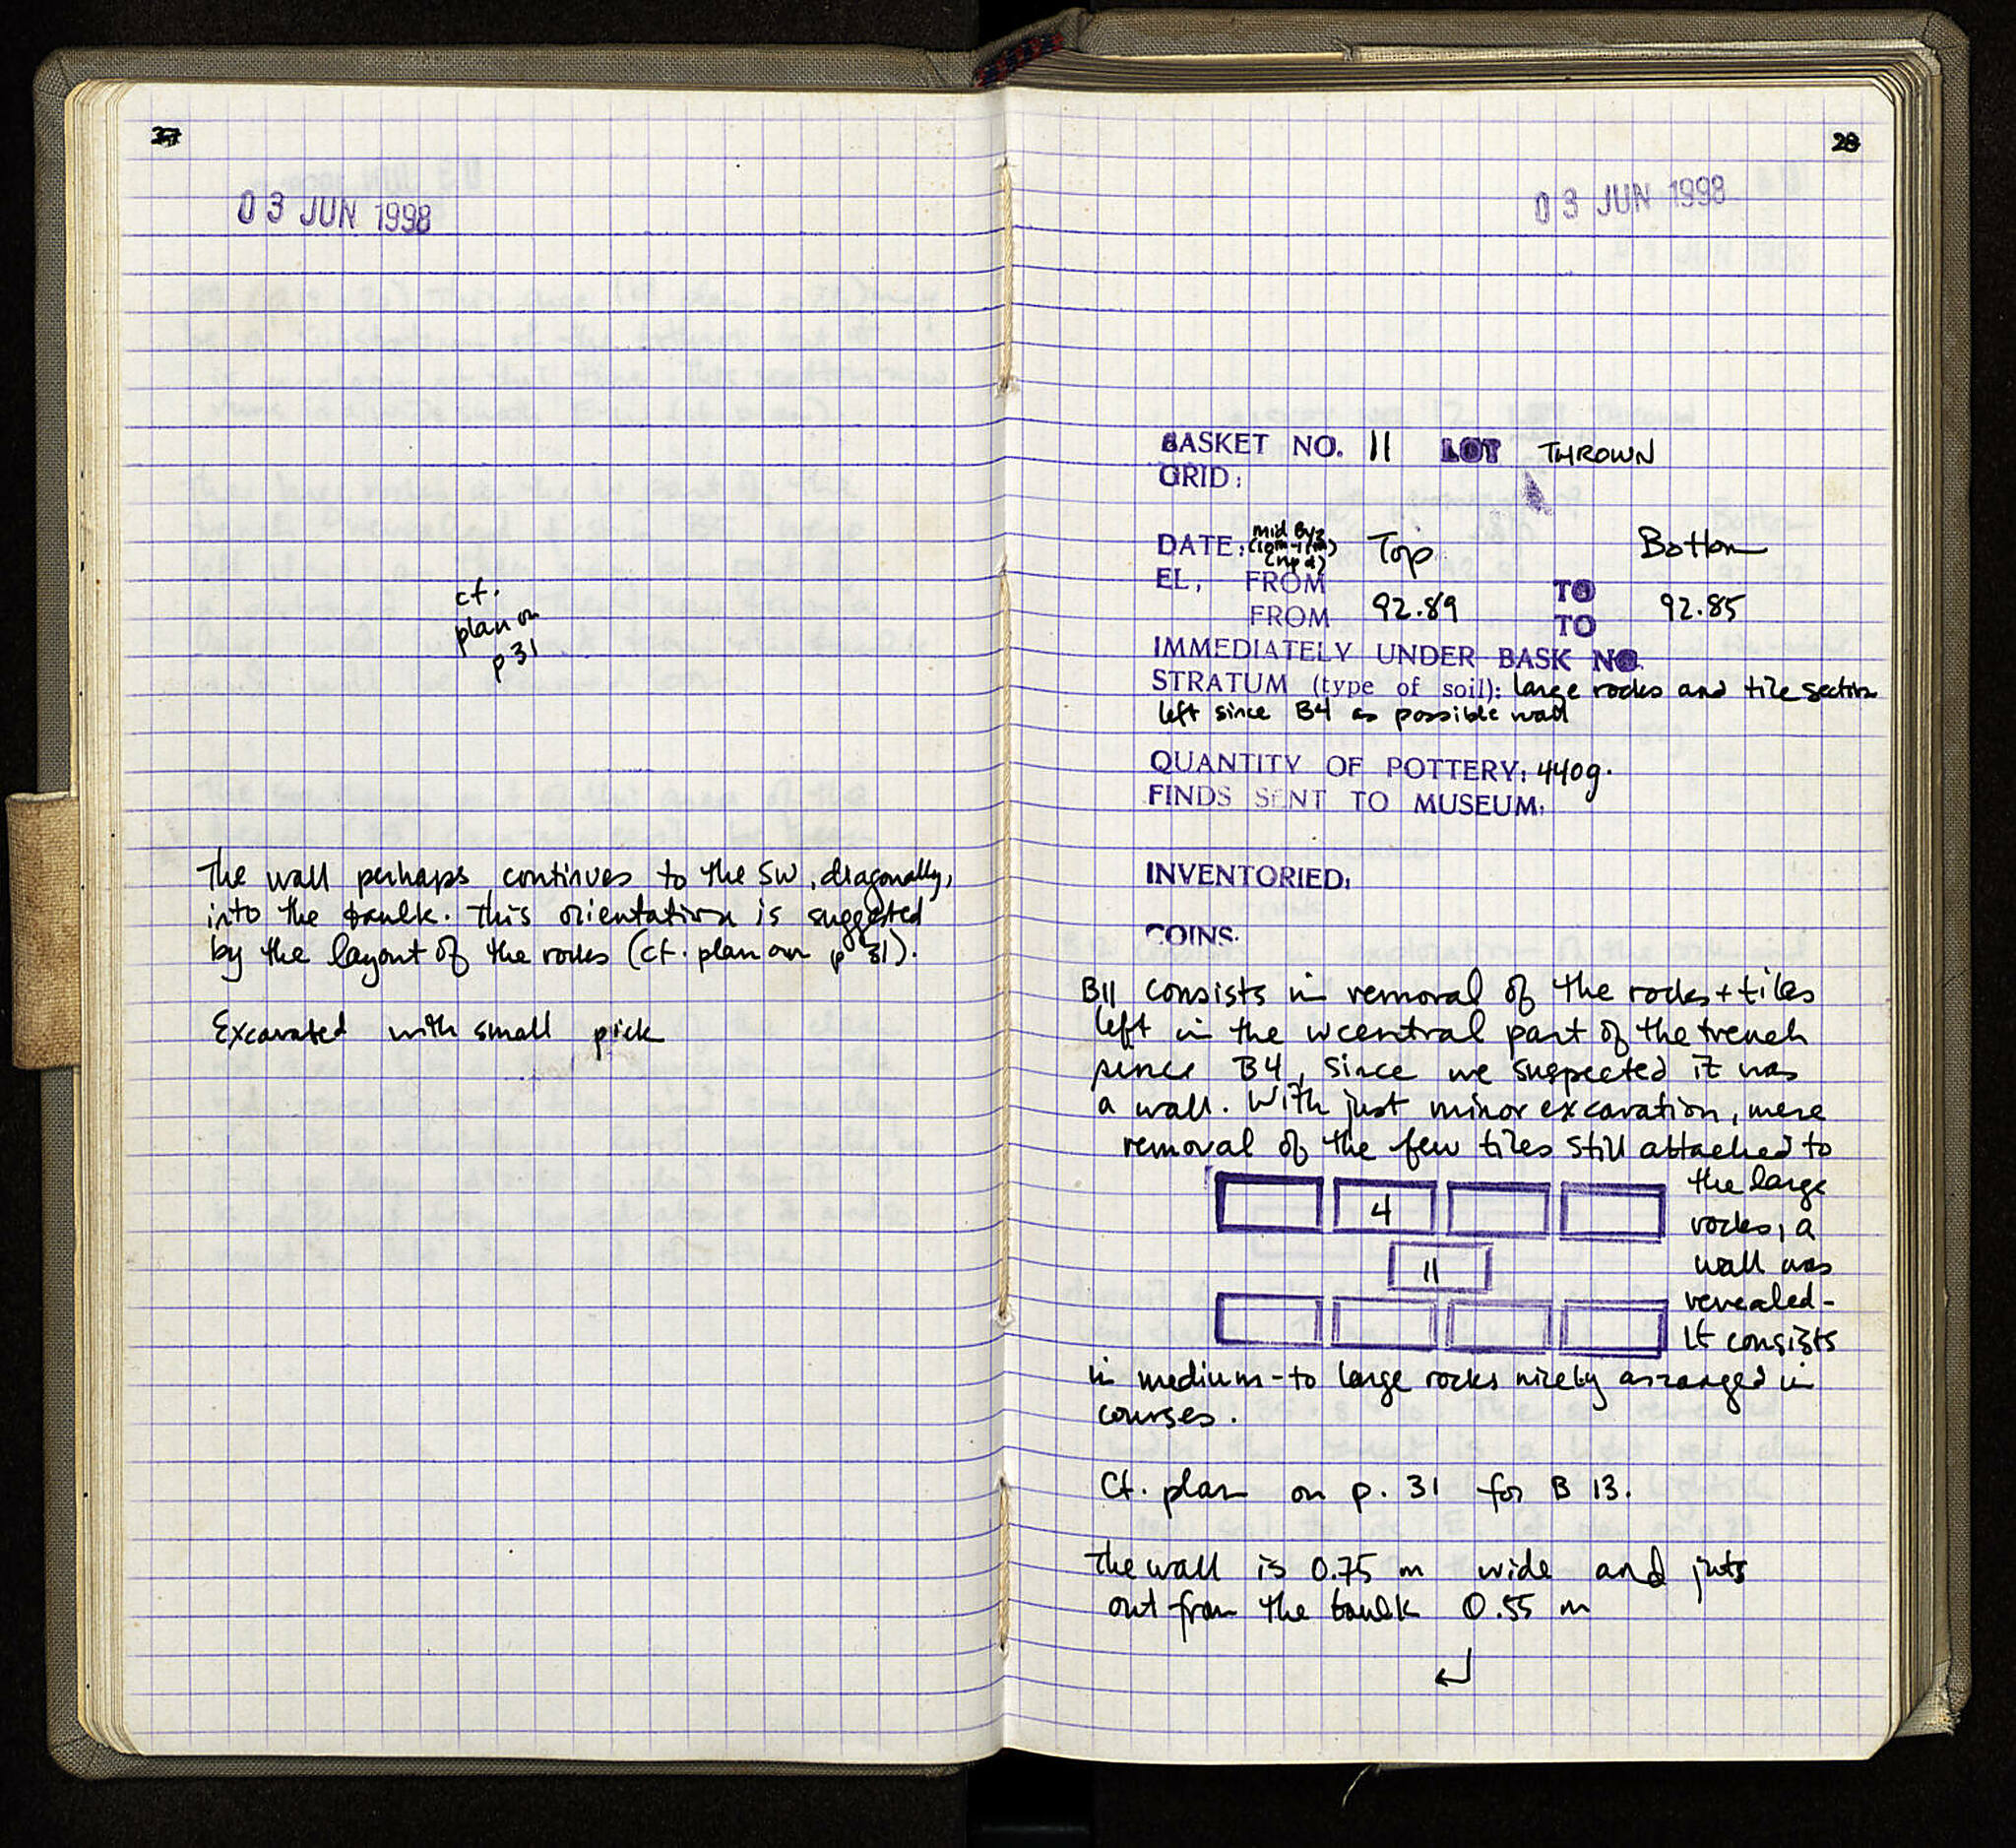 27
03 JUN 1998
cf.
plan on
p 31
The wall perhaps continues to the SW, diagonally,
into the baulk. This orientation is suggested
by the layout of the rocks (cf. plan on p 31).
Excavated with small pick
28
03 JUN 1998
BASKET NO. 11 LOT THROWN
GRID:
mid Byz
DATE: (10th-11th) Top Bottom
(npd)
EL, FROM TO
FROM 92.89 TO 92.85
IMMEDIATELY UNDER BASK NO.
STRATUM (type of soil): large rocks and tile section
left since B4 as possible wall
QUANTITY OF POTTERY: 440g.
FINDS SENT TO MUSEUM:
INVENTORIED:
COINS.
B11 consists in removal of the rocks + tiles
left in the wcentral part of the trench
since B4, since we suspected it was
a wall. With just minor excavation, mere
removal of the few tiles still attached to
the large
4
rocks, a
11
wall was
revealed-
It consists
in medium-to large rocks nicely arranged in
courses.
Cf. plan on p. 31 for B 13.
The wall is 0.75 m wide and juts
out from the baulk 0.55 m